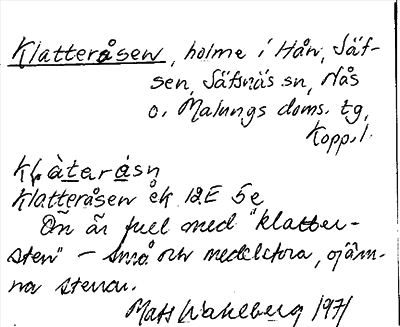 Klatteråsen, holme i Hån, Säf-
sen, Säfsnäs sn, Nås
o. Malungs doms. tg,
Kopp. l.
Klàtaråsn
Klatteråsen ek 12E 5e
Ön är full med "klatter-
sten" – små och medelstora, ojäm-
na stenar.
Mats Wahlberg 1971